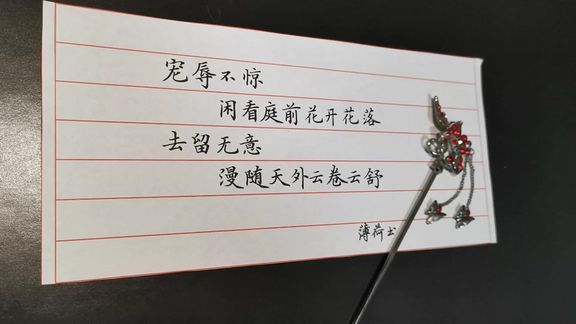 宠辱不惊
闲看庭前花开花落
去留无意
漫随天外云卷云舒
薄荷书